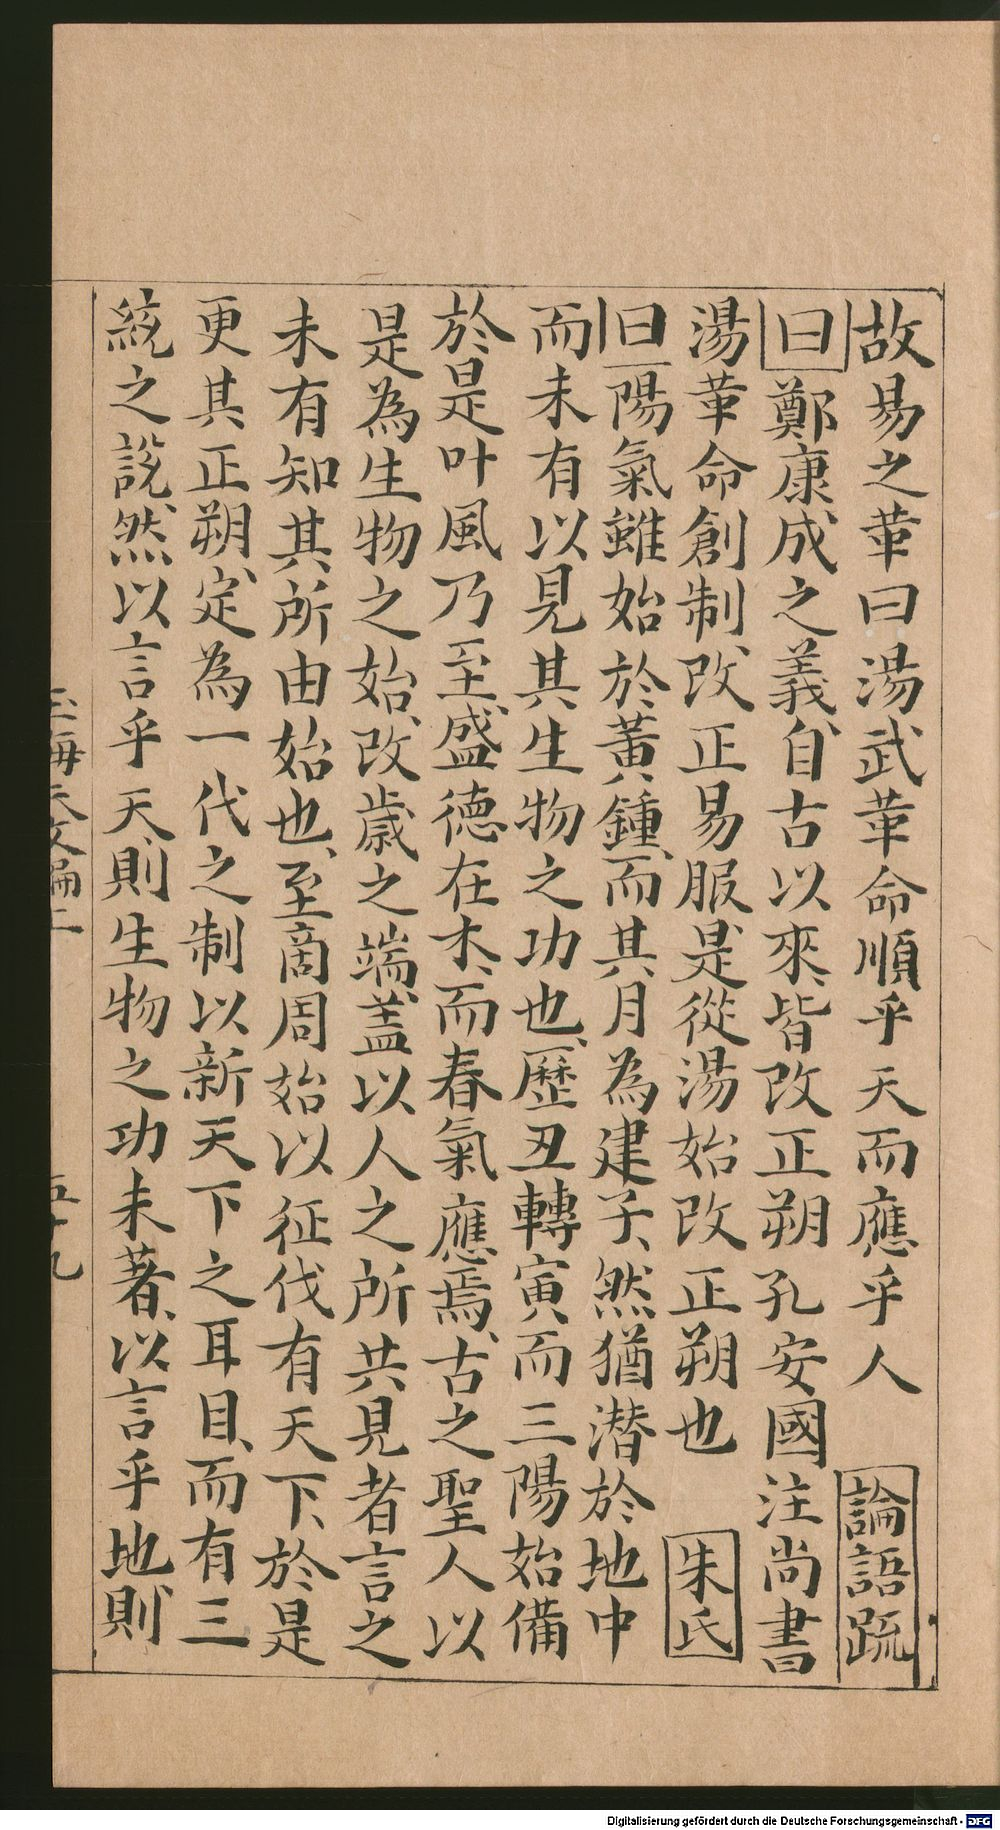 故易之革曰湯武革命順乎天而應乎人論語疏
曰鄭康成之義自古以來皆改正朔孔安國注尚書
湯革命創制改正易服是從湯始改正朔也朱氏
曰陽氣雖始於黃鍾而其月為建子然猶潜於地中
而未有以見其生物之功也歷丑轉寅而三陽始備
於是叶風乃至盛德在木而春氣應焉古之聖人以
是為生物之始改歲之端蓋以人之所共見者言之
未有知其所由始也至商周始以征伐有天下於是
更其正朔定為一代之制以新天下之耳目而有三
統之說然以言乎天則生物之功未著以言乎地則
玉海天文編二
五十九
Digitalisierung gefördert durch die Deutsche Forschungsgemeinschaft - DFG